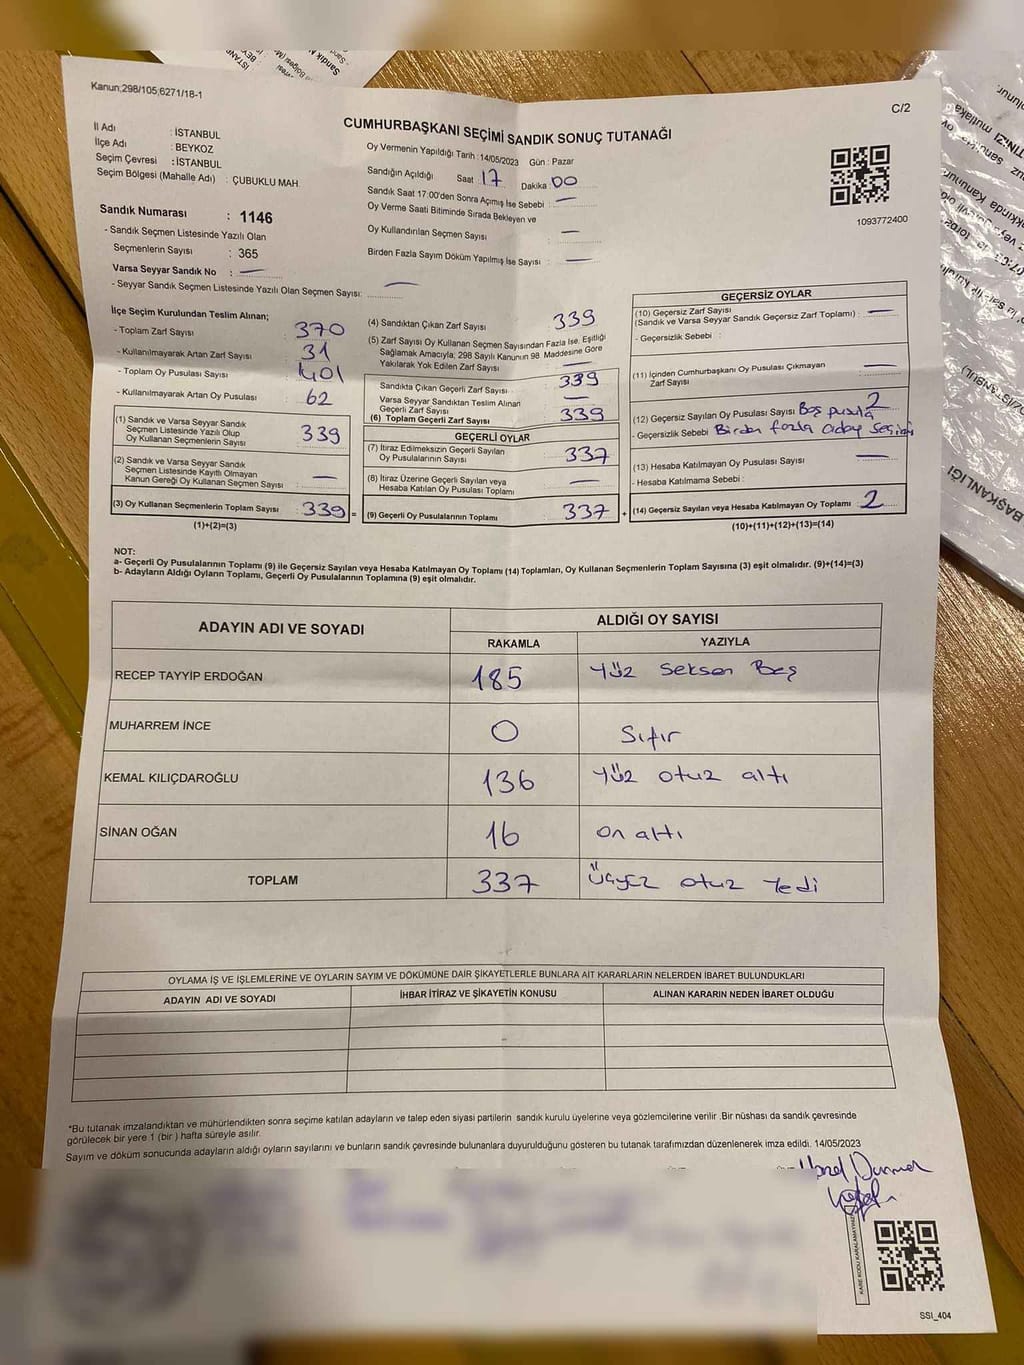 Kanun;298/105;6271/18-1
C/2
CUMHURBAŞKANI SEÇİMİ SANDIK SONUÇ TUTANAĞI
İl Adı : İSTANBUL
İlçe Adı : BEYKOZ
Seçim Çevresi : İSTANBUL
Seçim Bölgesi (Mahalle Adı) : ÇUBUKLU MAH
Sandık Numarası : 1146
- Sandık Seçmen Listesinde Yazılı Olan
Seçmenlerin Sayısı : 365
Varsa Seyyar Sandık No : —
- Seyyar Sandık Seçmen Listesinde Yazılı Olan Seçmen Sayısı: —
Oy Vermenin Yapıldığı Tarih : 14/05/2023 Gün : Pazar
Sandığın Açıldığı Saat 17 Dakika 00
Sandık Saat 17:00'den Sonra Açımış İse Sebebi : —
Oy Verme Saati Bitiminde Sırada Bekleyen ve
Oy Kullandırılan Seçmen Sayısı : —
Birden Fazla Sayım Döküm Yapılmış İse Sayısı : —
1093772400
İlçe Seçim Kurulundan Teslim Alınan;
- Toplam Zarf Sayısı : 370
- Kullanılmayarak Artan Zarf Sayısı : 31
- Toplam Oy Pusulası Sayısı : 401
- Kullanılmayarak Artan Oy Pusulası : 62
(1) Sandık ve Varsa Seyyar Sandık
Seçmen Listesinde Yazılı Olup
Oy Kullanan Seçmenlerin Sayısı : 339
(2) Sandık ve Varsa Seyyar Sandık
Seçmen Listesinde Kayıtlı Olmayan
Kanun Gereği Oy Kullanan Seçmen Sayısı : —
(3) Oy Kullanan Seçmenlerin Toplam Sayısı : 339 =
(1)+(2)=(3)
(4) Sandıktan Çıkan Zarf Sayısı : 339
(5) Zarf Sayısı Oy Kullanan Seçmen Sayısından Fazla İse, Eşitliği
Sağlamak Amacıyla; 298 Sayılı Kanunun 98. Maddesine Göre
Yakılarak Yok Edilen Zarf Sayısı : —
Sandıkta Çıkan Geçerli Zarf Sayısı : 339
Varsa Seyyar Sandıktan Teslim Alınan
Geçerli Zarf Sayısı : —
(6) Toplam Geçerli Zarf Sayısı : 339
GEÇERLİ OYLAR
(7) İtiraz Edilmeksizin Geçerli Sayılan
Oy Pusulalarının Sayısı : 337
(8) İtiraz Üzerine Geçerli Sayılan veya
Hesaba Katılan Oy Pusulası Toplamı : —
(9) Geçerli Oy Pusulalarının Toplamı : 337 +
GEÇERSİZ OYLAR
(10) Geçersiz Zarf Sayısı
(Sandık ve Varsa Seyyar Sandık Geçersiz Zarf Toplamı) : —
- Geçersizlik Sebebi :
(11) İçinden Cumhurbaşkanı Oy Pusulası Çıkmayan
Zarf Sayısı : —
(12) Geçersiz Sayılan Oy Pusulası Sayısı : 2
Boş pusula
- Geçersizlik Sebebi Birden fazla aday seçimi
(13) Hesaba Katılmayan Oy Pusulası Sayısı : —
- Hesaba Katılmama Sebebi :
(14) Geçersiz Sayılan veya Hesaba Katılmayan Oy Toplamı : 2
(10)+(11)+(12)+(13)=(14)
NOT:
a- Geçerli Oy Pusulalarının Toplamı (9) ile Geçersiz Sayılan veya Hesaba Katılmayan Oy Toplamı (14) Toplamları, Oy Kullanan Seçmenlerin Toplam Sayısına (3) eşit olmalıdır. (9)+(14)=(3)
b- Adayların Aldığı Oyların Toplamı, Geçerli Oy Pusulalarının Toplamına (9) eşit olmalıdır.
ADAYIN ADI VE SOYADI
ALDIĞI OY SAYISI
RAKAMLA YAZIYLA
RECEP TAYYİP ERDOĞAN 185 Yüz Seksen Beş
MUHARREM İNCE 0 Sıfır
KEMAL KILIÇDAROĞLU 136 Yüz otuz altı
SİNAN OĞAN 16 on altı
TOPLAM 337 Üçyüz otuz Yedi
OYLAMA İŞ VE İŞLEMLERİNE VE OYLARIN SAYIM VE DÖKÜMÜNE DAİR ŞİKAYETLERLE BUNLARA AİT KARARLARIN NELERDEN İBARET BULUNDUKLARI
ADAYIN ADI VE SOYADI İHBAR İTİRAZ VE ŞİKAYETİN KONUSU ALINAN KARARIN NEDEN İBARET OLDUĞU
*Bu tutanak imzalandıktan ve mühürlendikten sonra seçime katılan adayların ve talep eden siyasi partilerin sandık kurulu üyelerine veya gözlemcilerine verilir .Bir nüshası da sandık çevresinde
görülecek bir yere 1 (bir ) hafta süreyle asılır.
Sayım ve döküm sonucunda adayların aldığı oyların sayılarını ve bunların sandık çevresinde bulunanlara duyurulduğunu gösteren bu tutanak tarafımızdan düzenlenerek imza edildi. 14/05/2023
KARE KODU KARALAMAYINIZ
SSI_404